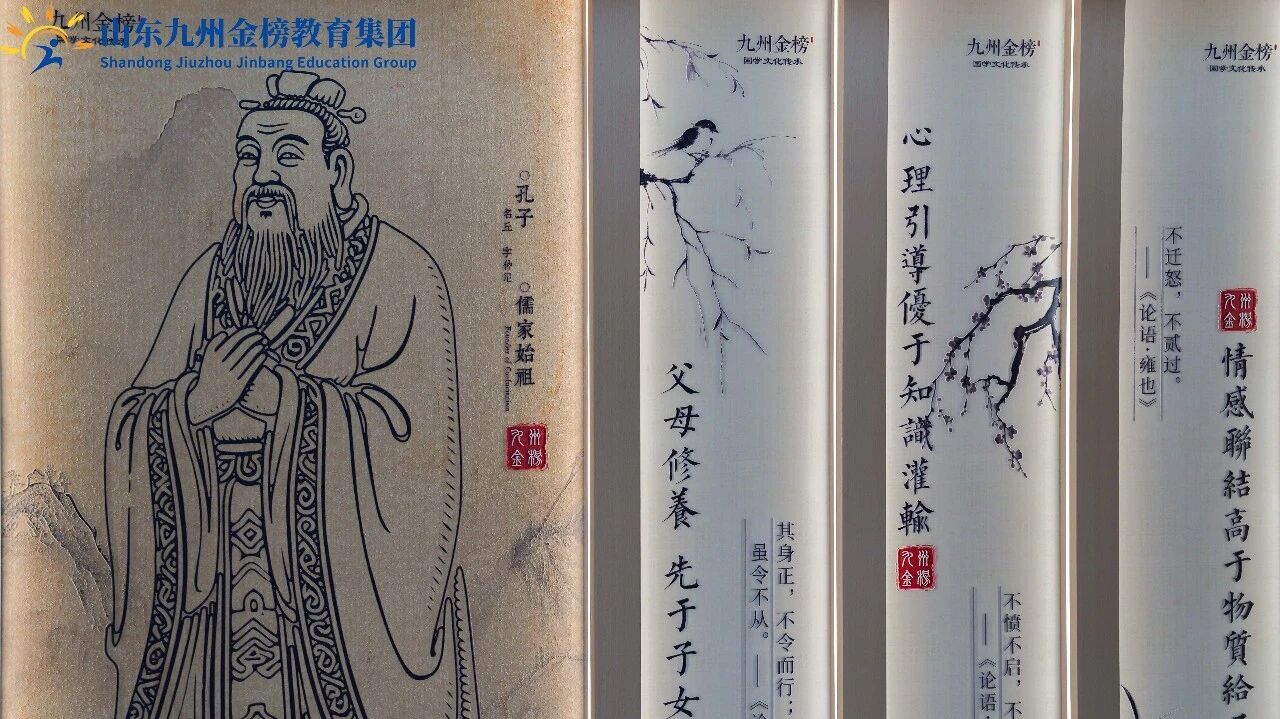 山东九州金榜教育集团
Shandong Jiuzhou Jinbang Education Group
九州金榜
孔子
名丘 字仲尼
儒家始祖
Founder of Confucianism
九州金榜
九州金榜
国学文化传承
父母修養 先于子女
其身正，不令而行；
虽令不从。——《论
九州金榜
国学文化传承
心理引導優于知識灌輸
九州金榜
不愤不启，不
——《论语
九州金榜
国学文化传承
不迁怒，不贰过。
——《论语·雍也》
九州金榜
情感聯結高于物質给